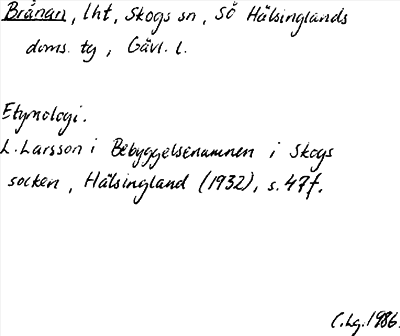 Brånan, lht, Skogs sn, Sö Hälsinglands
doms. tg, Gävl. l.
Etymologi.
L. Larsson i Bebyggelsenamnen i Skogs
socken, Hälsingland (1932), s. 47f.
C. Lg. 1986.